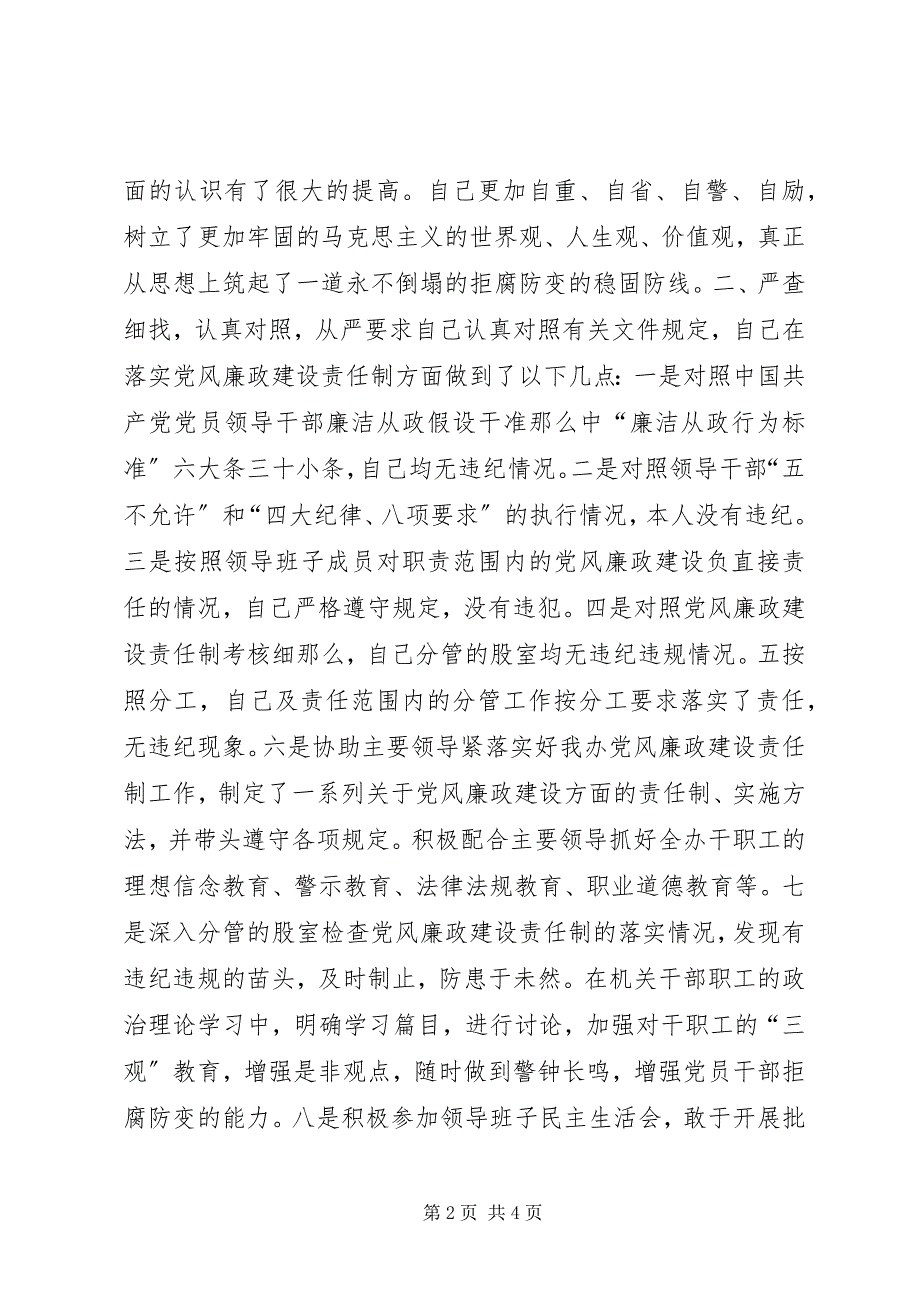 面的认识有了很大的提高。自己更加自重、自省、自警、自励，
树立了更加牢固的马克思主义的世界观、人生观、价值观，真正
从思想上筑起了一道永不倒塌的拒腐防变的稳固防线。二、严查
细找，认真对照，从严要求自己认真对照有关文件规定，自己在
落实党风廉政建设责任制方面做到了以下几点：一是对照中国共
产党党员领导干部廉洁从政假设干准那么中“廉洁从政行为标
准〞六大条三十小条，自己均无违纪情况。二是对照领导干部“五
不允许〞和“四大纪律、八项要求〞的执行情况，本人没有违纪。
三是按照领导班子成员对职责范围内的党风廉政建设负直接责
任的情况，自己严格遵守规定，没有违犯。四是对照党风廉政建
设责任制考核细那么，自己分管的股室均无违纪违规情况。五按
照分工，自己及责任范围内的分管工作按分工要求落实了责任，
无违纪现象。六是协助主要领导紧落实好我办党风廉政建设责任
制工作，制定了一系列关于党风廉政建设方面的责任制、实施方
法，并带头遵守各项规定。积极配合主要领导抓好全办干职工的
理想信念教育、警示教育、法律法规教育、职业道德教育等。七
是深入分管的股室检查党风廉政建设责任制的落实情况，发现有
违纪违规的苗头，及时制止，防患于未然。在机关干部职工的政
治理论学习中，明确学习篇目，进行讨论，加强对干职工的“三
观〞教育，增强是非观点，随时做到警钟长鸣，增强党员干部拒
腐防变的能力。八是积极参加领导班子民主生活会，敢于开展批
第 2 页 共 4 页